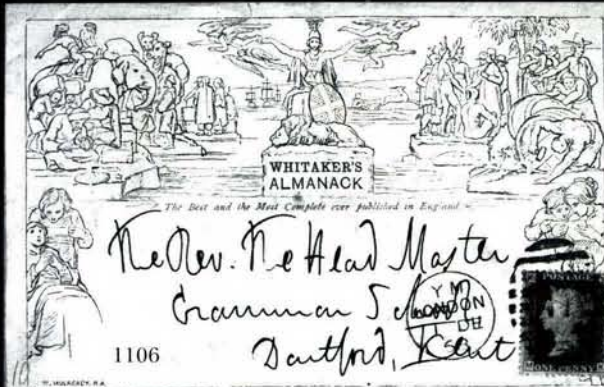 WHITAKER'S
ALMANACK
The Best and the Most Complete ever published in England
The Rev. The Head Master
Grammar School
Dartford, Kent
LONDON
POSTAGE
ONE PENNY
1106
W. MULREADY. R.A.